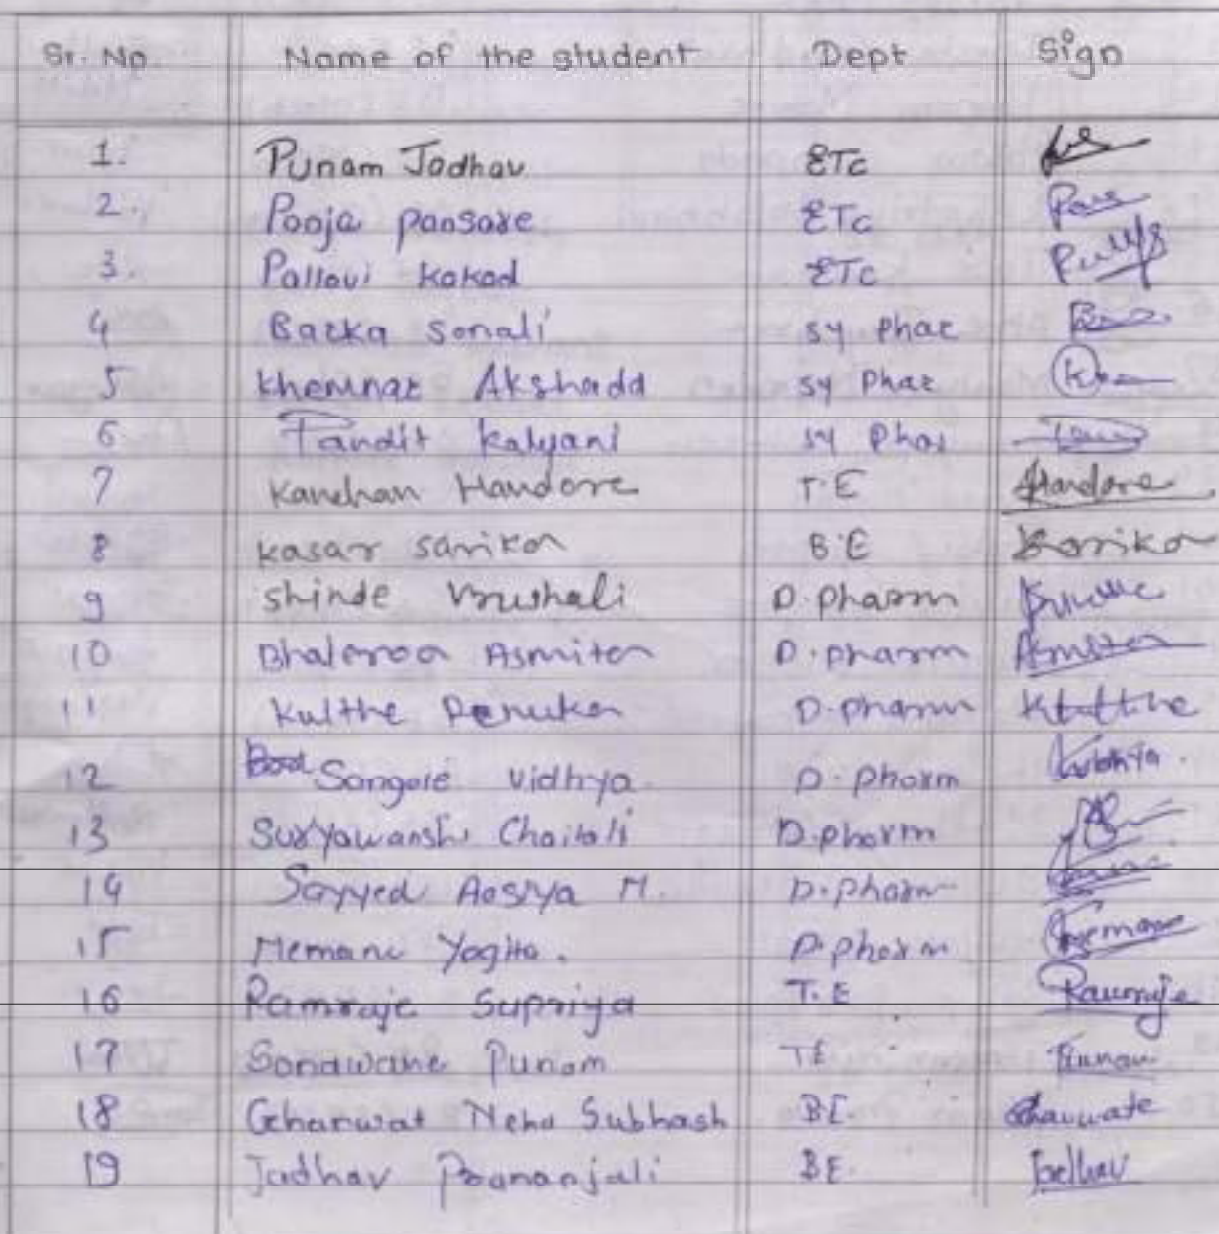 Sr. No. Name of the student Dept Sign
1. Punam Jadhav ETC
2. Pooja pansare ETC
3. Pallavi kakad ETC
4 Barka Sonali SY Phar
5 khemnar Akshadd SY Phar
6 Pandit kalyani SY Phar
7 Kanchan Handore T.E Handore
8 kasar sarika B.E Sarika
9 shinde Vrushali D.pharm
10 Bhalerao Asmita D.pharm Asmita
11 Kulthe Renuka D.pharm Kulthe
12 Sangale Vidhya D.pharm
13 Suryawanshi Chaitali D.pharm
14 Sayyed Aasiya M. D.pharm
15 Memane Yogita. D.pharm Memane
16 Pamraje Supriya T.E
17 Sonawane Punam TE Punam
18 Gharwat Neha Subhash B.E.
19 Jadhav Prananjali BE. Jadhav